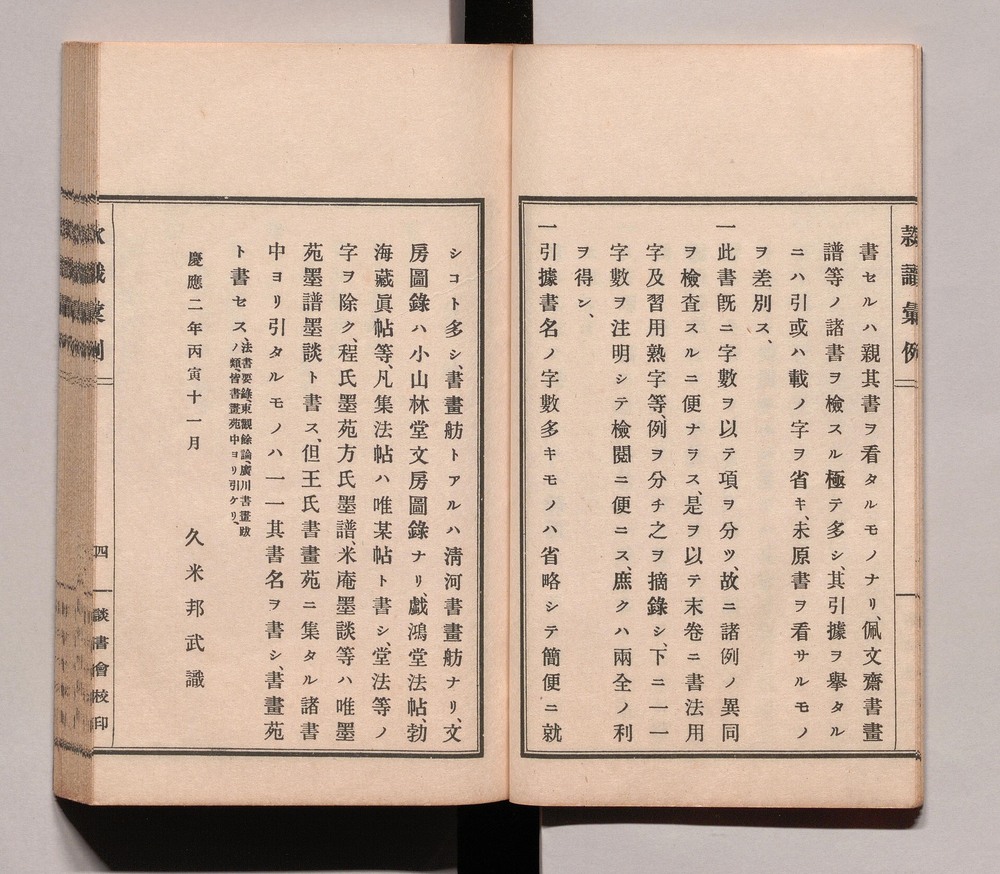 書セルハ親其書ヲ看タルモノナリ、佩文齋書畫
譜等ノ諸書ヲ檢スル極テ多シ、其引據ヲ擧タル
ニハ引或ハ載ノ字ヲ省キ、未原書ヲ看サルモノ
ヲ差別ス、
一此書既ニ字數ヲ以テ項ヲ分ツ、故ニ諸例ノ異同
ヲ檢査スルニ便ナラス、是ヲ以テ末卷ニ書法用
字及習用熟字等、例ヲ分チ之ヲ摘錄シ、下ニ一一
字數ヲ注明シテ檢閲ニ便ニス、庶クハ兩全ノ利
ヲ得ン、
一引據書名ノ字數多キモノハ省略シテ簡便ニ就
シコト多シ、書畫舫トアルハ淸河書畫舫ナリ、文
房圖錄ハ小山林堂文房圖錄ナリ、戲鴻堂法帖、勃
海藏眞帖等、凡集法帖ハ唯某帖ト書シ堂法等ノ
字ヲ除ク、程氏墨苑方氏墨譜、米庵墨談等ハ唯墨
苑墨譜墨談ト書ス、但王氏書畫苑ニ集タル諸書
中ヨリ引タルモノハ一一其書名ヲ書シ、書畫苑
ト書セス、法書要錄、東觀餘論、廣川書畫跋
ノ類、皆書畫苑中ヨリ引ケリ、
慶應二年丙寅十一月
久米邦武識
四
談書會校印